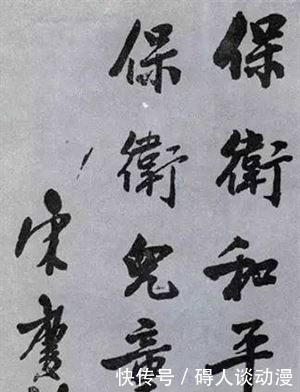 保衛和平
保衛兒童
宋慶
快传号/碍人谈动漫